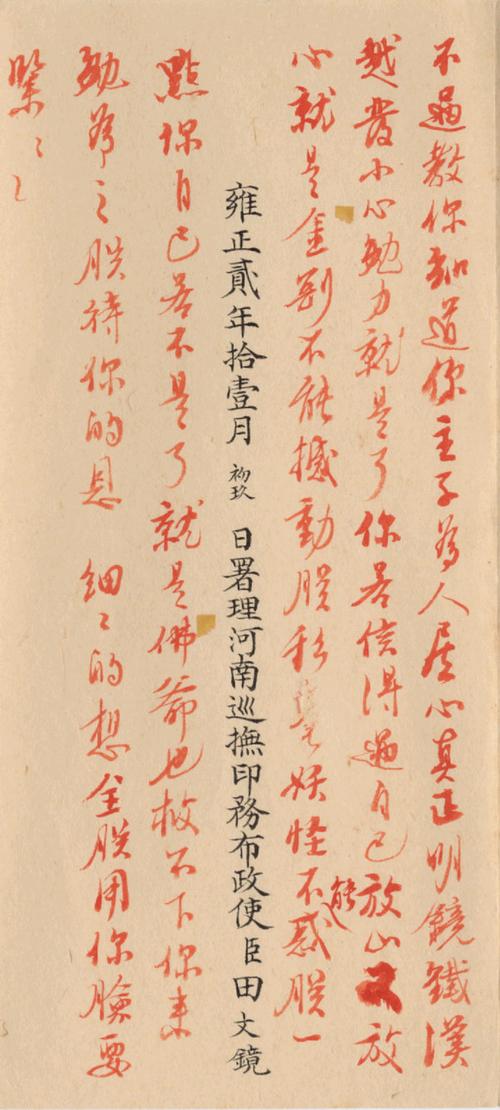 不過教你知道你主子為人居心真正明鏡鐵漢
越發小心勉力就是了你若信得過自己放心又放
心就是金剛不能撼動朕秋毫妖怪不能惑朕一
雍正貳年拾壹月初玖日署理河南巡撫印務布政使臣田文鏡
點你自己若不是了就是佛爺也救不下你來
勉為之朕待你的恩 細〻的想全朕用你臉要
緊〻〻